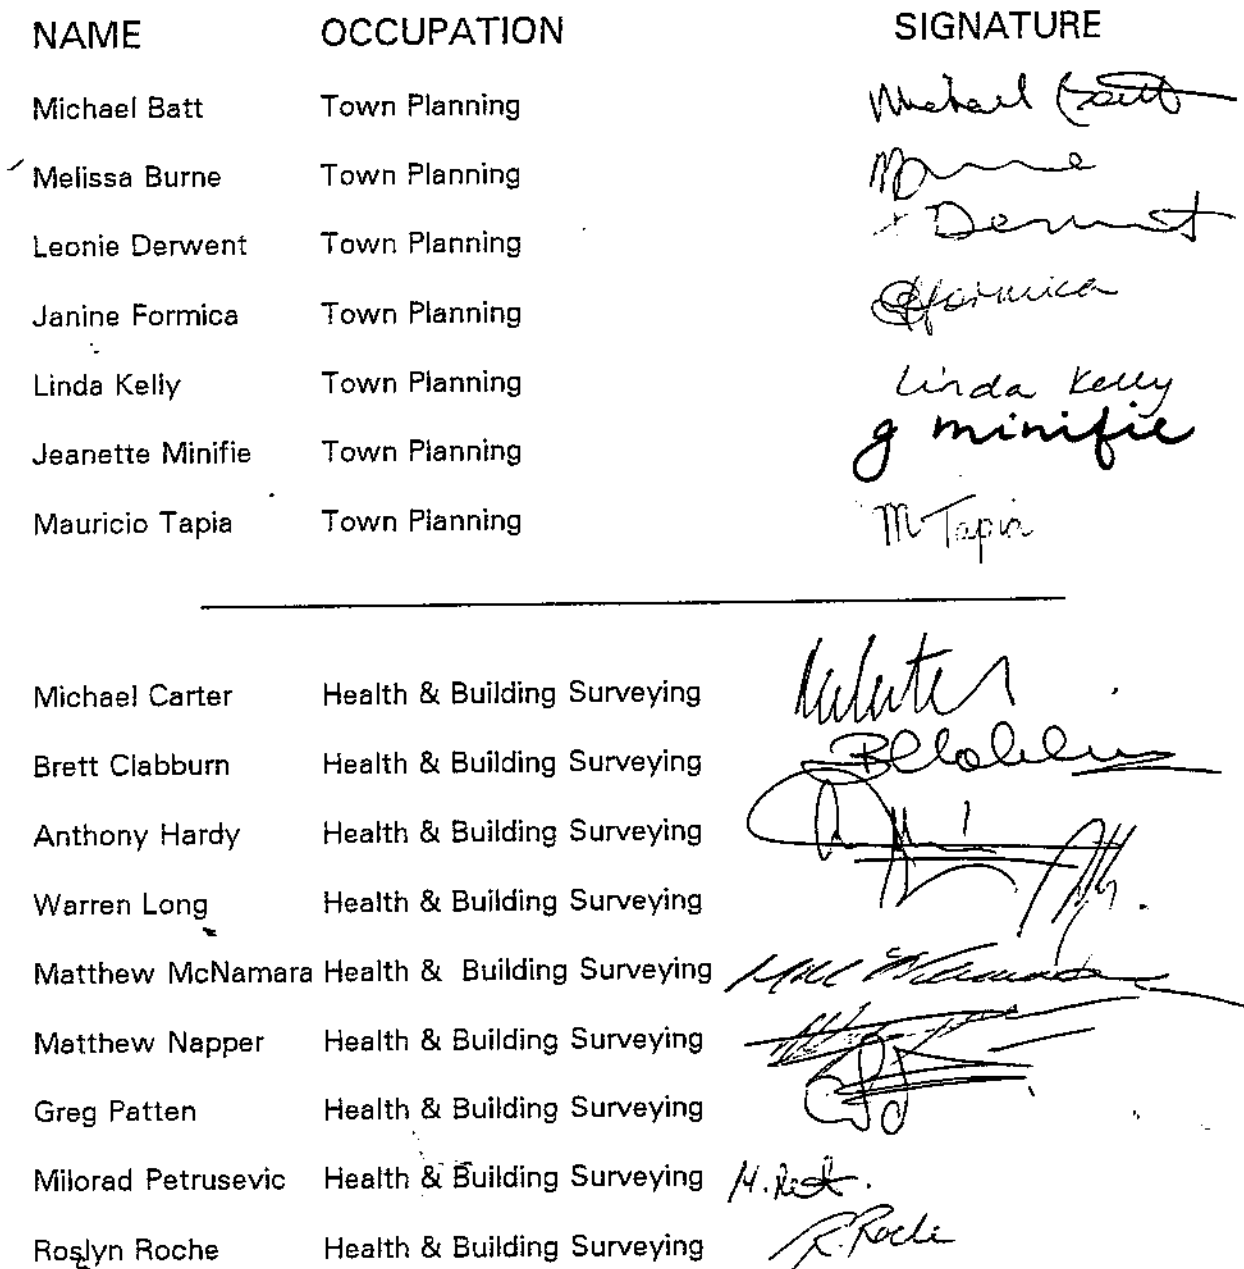 NAME OCCUPATION SIGNATURE
Michael Batt Town Planning Michael Batt
Melissa Burne Town Planning MBurne
Leonie Derwent Town Planning Derwent
Janine Formica Town Planning Formica
Linda Kelly Town Planning Linda Kelly
Jeanette Minifie Town Planning g minifie
Mauricio Tapia Town Planning M Tapia
Michael Carter Health & Building Surveying
Brett Clabburn Health & Building Surveying
Anthony Hardy Health & Building Surveying
Warren Long Health & Building Surveying
Matthew McNamara Health & Building Surveying
Matthew Napper Health & Building Surveying
Greg Patten Health & Building Surveying
Milorad Petrusevic Health & Building Surveying
Roslyn Roche Health & Building Surveying R. Roche